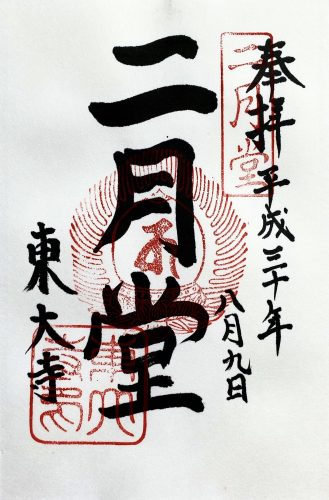 奉拝 平成三十年
八月九日
二月堂
二月堂
東大寺
東大寺